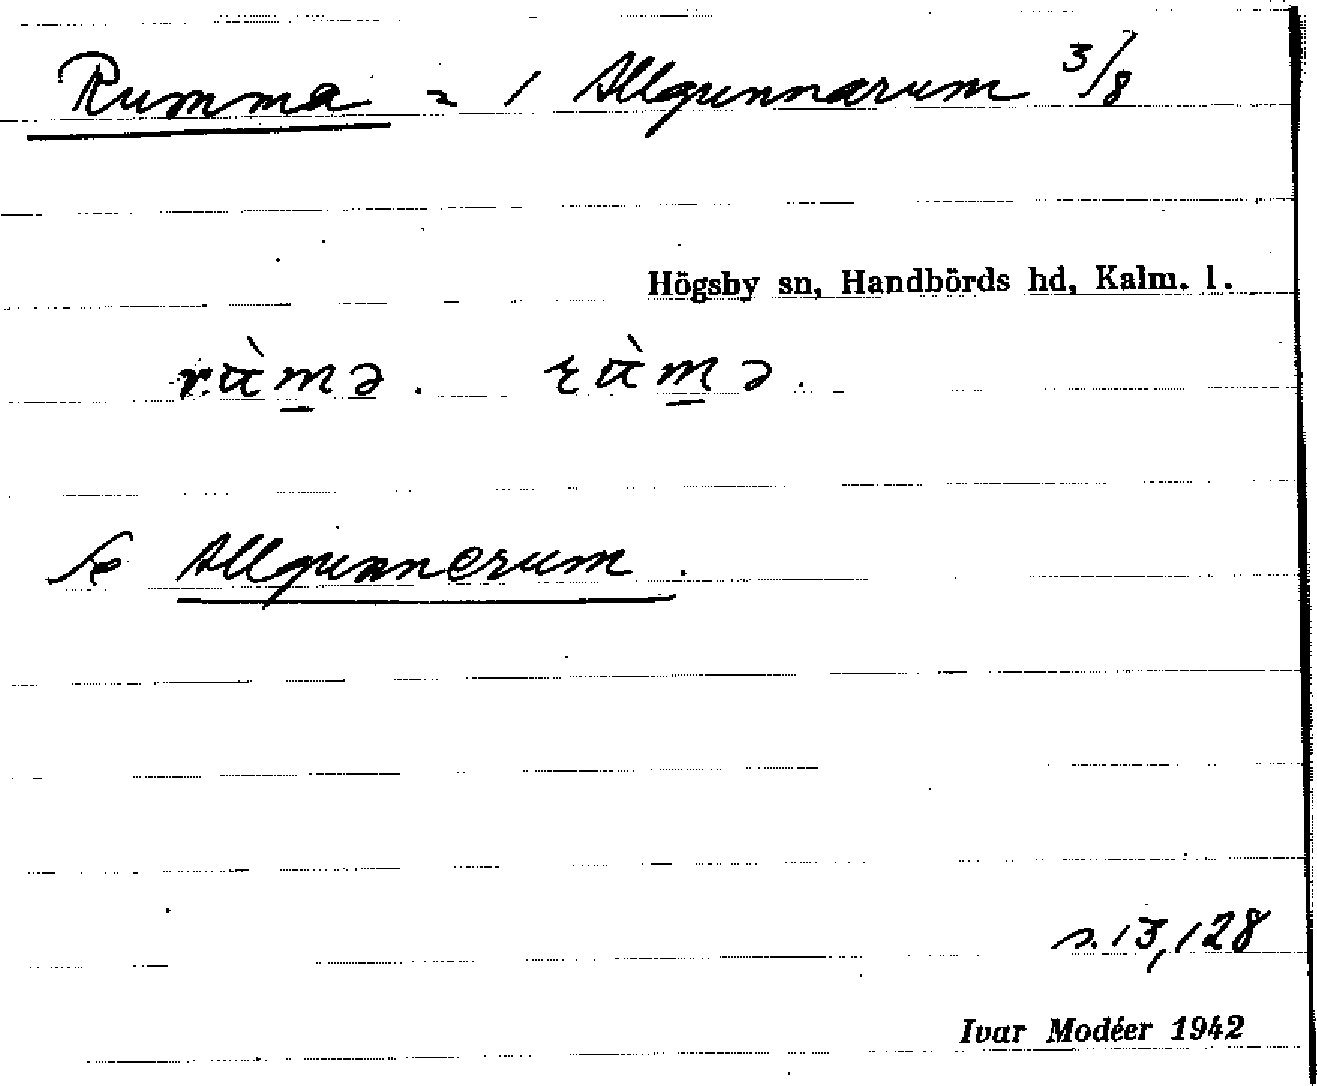 Rumma = 1 Allgunnarum 3/8
Högsby sn, Handbörds hd, Kalm. l.
Se Allgunnerum.
s. 13, 128
Ivar Modéer 1942